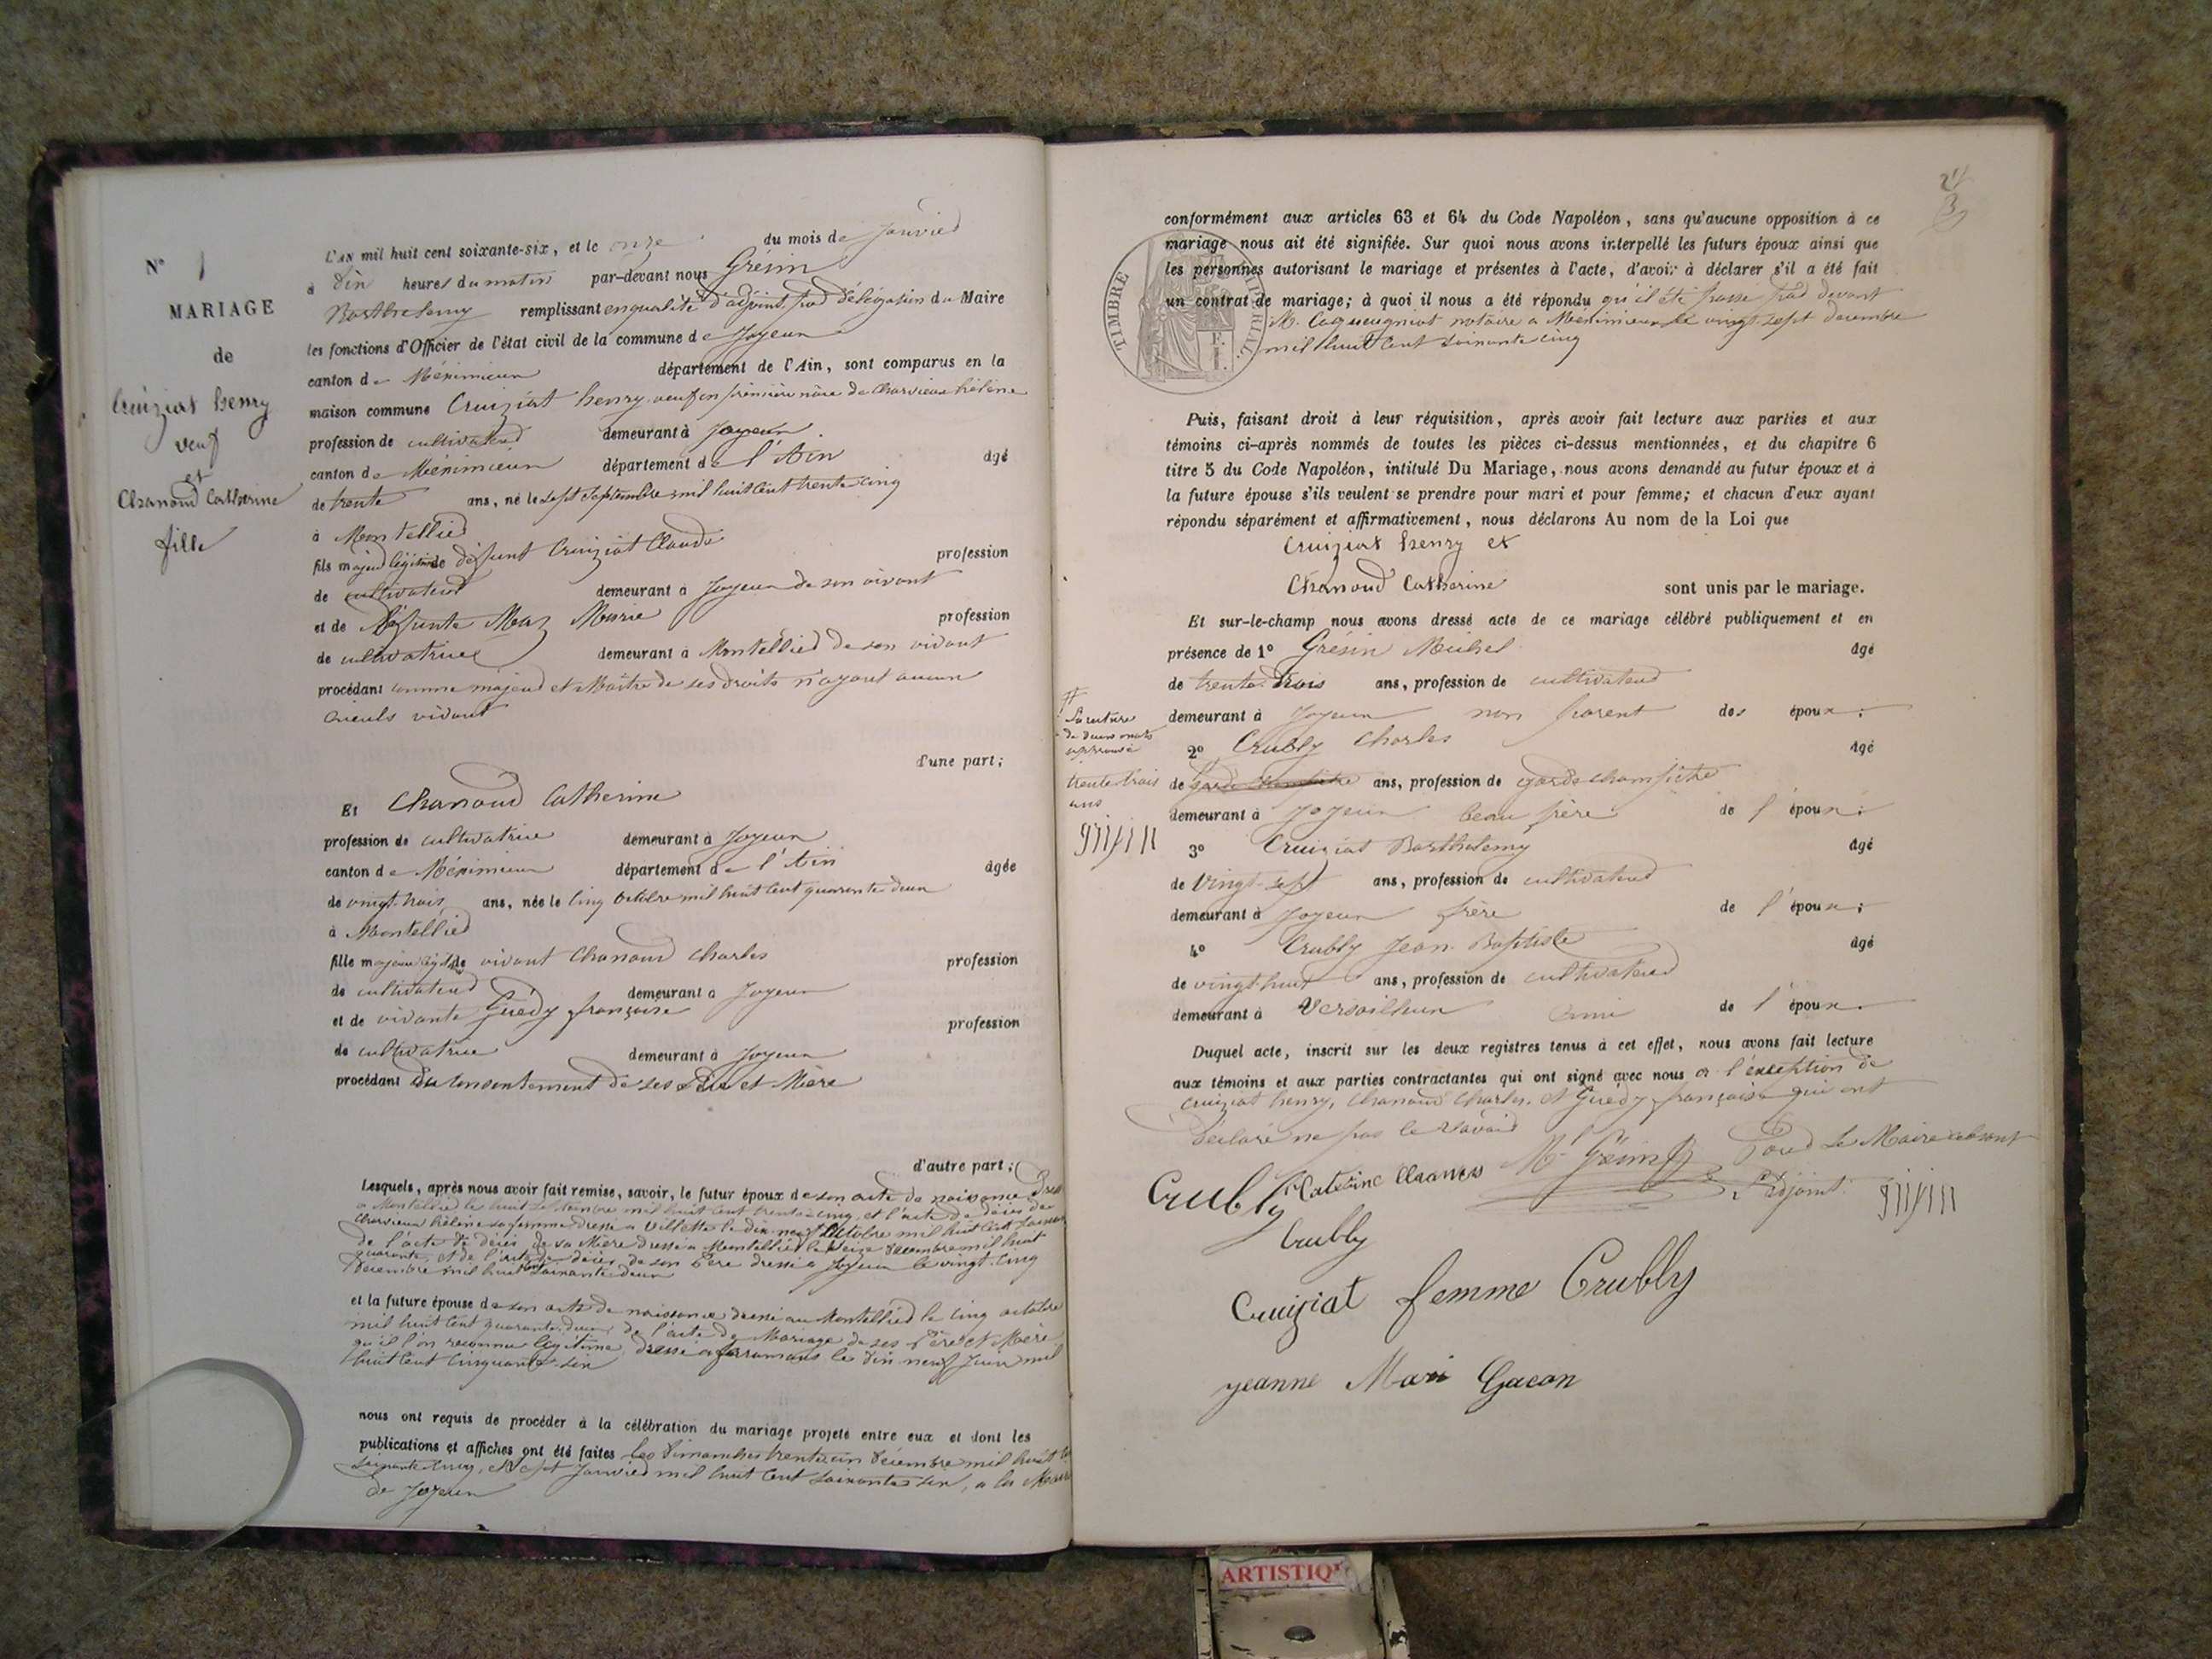 N° 1
MARIAGE
de
Cruiziat henry
veuf
et
Chanoud Catherine
fille
L'AN mil huit cent soixante-six, et le onze du mois de Janvier
à dix heures du matin par-devant nous Grésin
Barthelemy remplissant en qualité d'adjoint, par délégation du Maire
les fonctions d'Officier de l'état civil de la commune de Joyeux
canton de Meximieux département de l'Ain, sont comparus en la
maison commune Cruiziat henry veuf en première nôce de Charvieux hélène
profession de cultivateur demeurant à Joyeux
canton de Méximieux département de l'Ain âgé
de trente ans, né le sept septembre mil huit cent trente cinq
à Montellier
fils majeur légitime de défunt Cruiziat Claude profession
de cultivateur demeurant à Joyeux de son vivant
et de Défunte Marie profession
de cultivatrice demeurant à Montellier de son vivant
procédant comme majeur et Maître de ses droits n'ayant aucun
aieuls vivant
d'une part;
Et Chanoud Catherine
profession de cultivatrice demeurant à Joyeux
canton de Méximieux département de l'Ain âgée
de vingt-trois ans, née le cinq octobre mil huit cent quarante deux
à Montellier
fille majeure légitime de vivant Chanoud Charles profession
de cultivateur demeurant à Joyeux
et de vivante Guédy françoise profession
de cultivatrice demeurant à Joyeux
procédant Du consentement de ses Père et Mère
d'autre part;
Lesquels, après nous avoir fait remise, savoir, le futur époux de son acte de naissance Dressé
a Montellier le huit septembre mil huit cent trente-cinq, et l'acte de décès de
Charvieux hélène sa femme dressé a Villette le dix-neuf Octobre mil huit cent
de l'acte de décès de sa Mère dressé a Montellier le decembre mil huit
quarante, et de l'acte de décès de son Père dressé a Joyeux le vingt-cinq
Décembre mil huit cent soixante deux
et la future épouse de son acte de naissance dressé au Montellier le cinq octobre
mil huit cent quarante-deux, de l'acte de Mariage de ses Père et Mère
qu'il l'on reconnu légitime, dressé a faramans le dix neuf Juin mil
huit cent cinquante-six
nous ont requis de procéder à la célébration du mariage projeté entre eux et dont les
publications et affiches ont été faites les Dimanches trente un Décembre mil huit
soixante cinq, et sept Janvier mil huit cent soixante six, a la
de Joyeux
3
conformément aux articles 63 et 64 du Code Napoléon, sans qu'aucune opposition à ce
mariage nous ait été signifiée. Sur quoi nous avons interpellé les futurs époux ainsi que
les personnes autorisant le mariage et présentes à l'acte, d'avoir à déclarer s'il a été fait
un contrat de mariage; à quoi il nous a été répondu qu'il été passé par devant
M. notaire a Meximieux le vingt-sept décembre
mil huit cent soixante cinq
TIMBRE IMPÉRIAL
Puis, faisant droit à leur réquisition, après avoir fait lecture aux parties et aux
témoins ci-après nommés de toutes les pièces ci-dessus mentionnées, et du chapitre 6
titre 5 du Code Napoléon, intitulé Du Mariage, nous avons demandé au futur époux et à
la future épouse s'ils veulent se prendre pour mari et pour femme; et chacun d'eux ayant
répondu séparément et affirmativement, nous déclarons Au nom de la Loi que
Cruiziat henry et
Chanoud Catherine sont unis par le mariage.
Et sur-le-champ nous avons dressé acte de ce mariage célébré publiquement et en
présence de 1° Grésin Michel âgé
de trente-trois ans, profession de cultivateur
demeurant à Joyeux non parent des époux;
2° Crubly Charles âgé
de garde champêtre ans, profession de garde champêtre
demeurant à Joyeux beau frère de l'époux;
3° Cruiziat Barthelemy âgé
de vingt-sept ans, profession de cultivateur
demeurant à Joyeux frère de l'époux;
4° Crubly Jean-Baptiste âgé
de vingt-huit ans, profession de cultivateur
demeurant à Versailleux ami de l'époux.
La rature
de deux mots
approuvé
trente trois
ans
Duquel acte, inscrit sur les deux registres tenus à cet effet, nous avons fait lecture
aux témoins et aux parties contractantes qui ont signé avec nous a l'exception de
Cruiziat henry, Chanoud Charles, et Guédy françoise qui ont
déclaré ne pas le savoir
Crubly Catherine Chanoud Pour Le Maire absent
L'Adjoint
Crubly
Cruiziat femme Crubly
jeanne Mari Gacon
ARTISTIQ